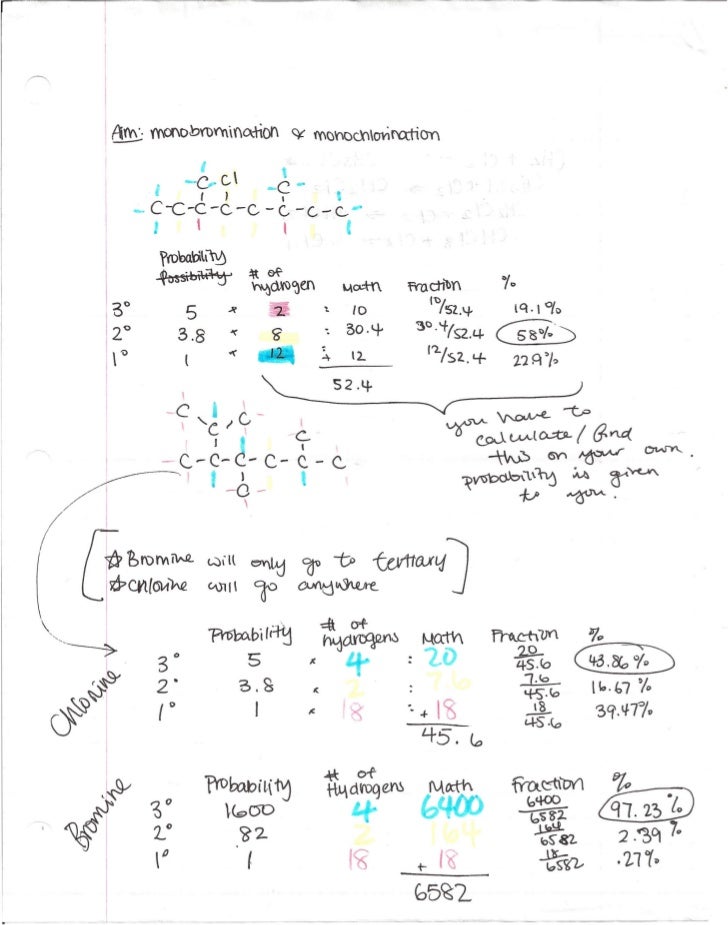 Aim: monobromination & monochlorination
C Cl C
C-C-C-C-C-C-C-C
Probability
possibility # of hydrogen Math Fraction %
3° 5 * 2 : 10 10/52.4 19.1%
2° 3.8 * 8 : 30.4 30.4/52.4 58%
1° 1 * 12 : + 12 12/52.4 229%
52.4
you have to
calculate/find
this on your own.
probability is given
to you.
C
C C C
C-C-C-C-C-C
C
☆Bromine will only go to tertiary
☆chlorine will go anywhere
Chlorine
Probability # of hydrogens Math Fraction %
3° 5 * 4 : 20 20/45.6 43.86%
2° 3.8 * 2 : 7.6 7.6/45.6 16.67%
1° 1 * 18 : + 18 18/45.6 39.47%
45.6
Bromine
Probability # of Hydrogens Math fraction %
3° 1600 4 6400 6400/6582 97.23%
2° 82 2 164 164/6582 2.39%
1° 1 18 + 18 18/6582 .27%
6582